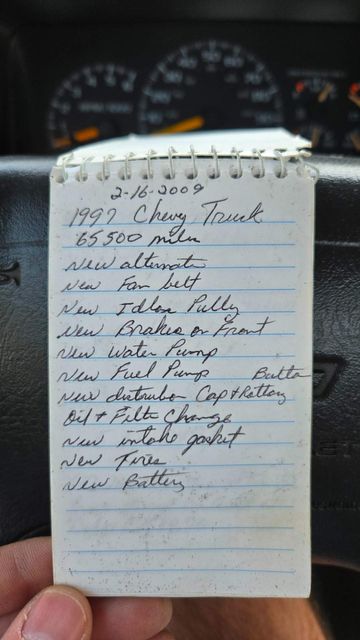 2-16-2009
1997 Chevy Truck
65500 miles
New alternator
New Fan belt
New Idler Pully
New Brakes on Front
New Water Pump
New Fuel Pump
New distributor Cap +
Oil + Filter Change
New intake gasket
New Tires
New Battery